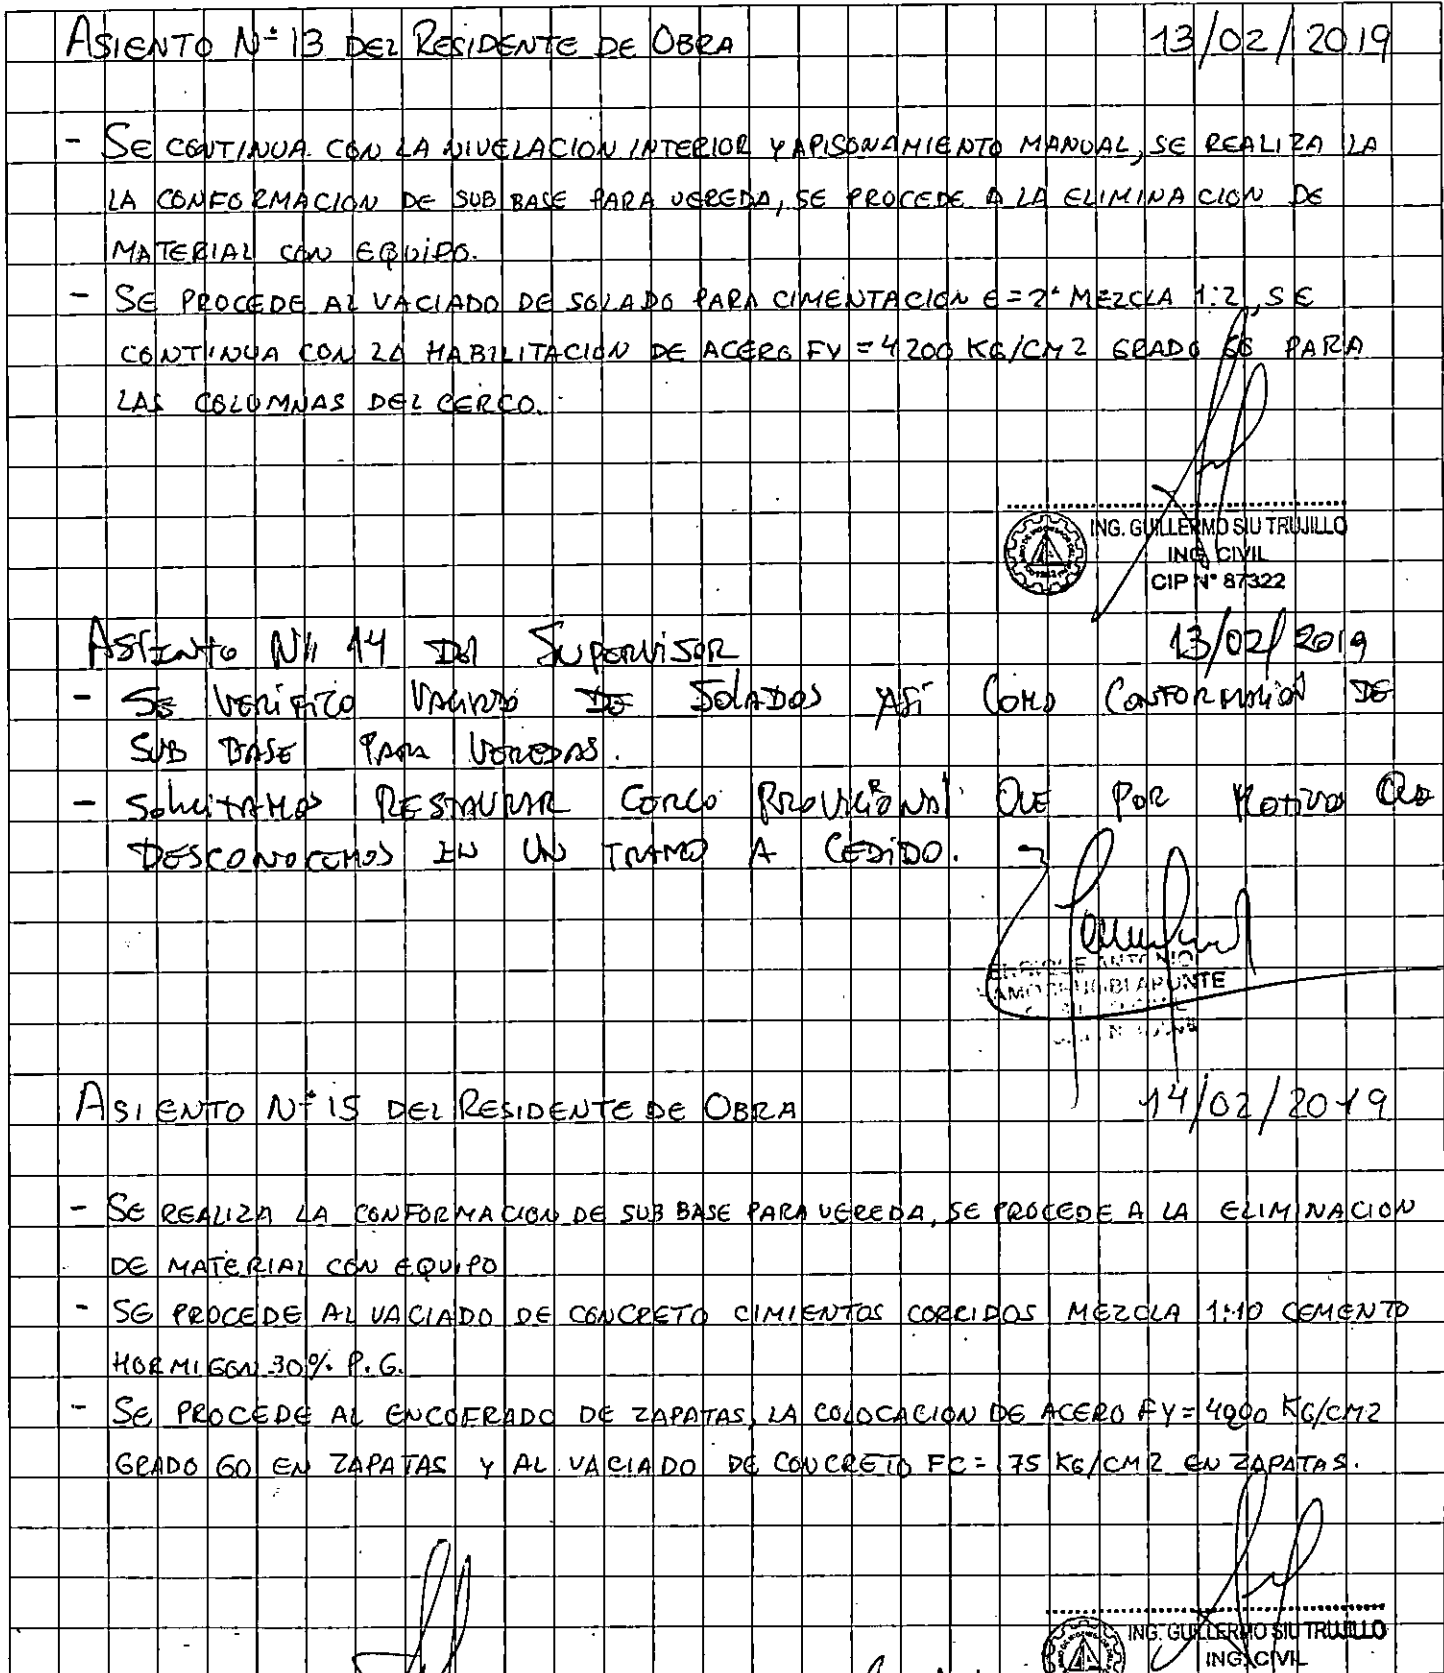 ASIENTO Nº 13 DEL RESIDENTE DE OBRA 13/02/2019
- SE CONTINUA CON LA NIVELACION INTERIOR Y APISONAMIENTO MANUAL, SE REALIZA LA
LA CONFORMACION DE SUB BASE PARA VEREDA, SE PROCEDE A LA ELIMINACION DE
MATERIAL CON EQUIPO.
- SE PROCEDE AL VACIADO DE SOLADO PARA CIMENTACION e=2" MEZCLA 1:2, SE
CONTINUA CON LA HABILITACION DE ACERO FY=4200 KG/CM2 GRADO 60 PARA
LAS COLUMNAS DEL CERCO.
ING. GUILLERMO SIU TRUJILLO
ING. CIVIL
CIP Nº 87322
ASIENTO Nº 14 DEL SUPERVISOR 13/02/2019
- SE VERIFICO VACIADO DE SOLADOS ASÍ COMO CONFORMACIÓN DE
SUB BASE PARA VEREDAS.
- SOLICITAMOS RESTAURAR CERCO PROVICIONAL QUE POR MOTIVOS QUE
DESCONOCEMOS EN UN TRAMO A CEDIDO.
ENRIQUE ANTONIO
APUNTE
ASIENTO Nº 15 DEL RESIDENTE DE OBRA 14/02/2019
- SE REALIZA LA CONFORMACION DE SUB BASE PARA VEREDA, SE PROCEDE A LA ELIMINACION
DE MATERIAL CON EQUIPO
- SE PROCEDE AL VACIADO DE CONCRETO CIMIENTOS CORRIDOS MEZCLA 1:10 CEMENTO
HORMIGON 30% P.G.
- SE PROCEDE AL ENCOFRADO DE ZAPATAS, LA COLOCACION DE ACERO FY=4200 KG/CM2
GRADO 60 EN ZAPATAS Y AL VACIADO DE CONCRETO FC=175 KG/CM2 EN ZAPATAS.
ING. GUILLERMO SIU TRUJILLO
ING. CIVIL